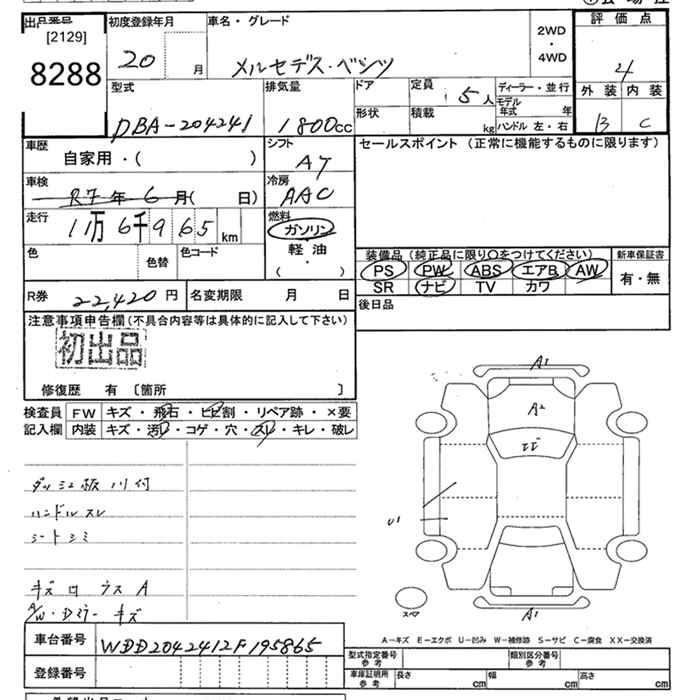 出品番号
[2129]
8288
初度登録年月
20 月
車名・グレード
メルセデス・ベンツ
2WD
・
4WD
評価点
4
外装 内装
B C
型式
DBA-204241
排気量
1800cc
ドア
定員
5人
ディーラー・並行
形状
積載
kg
モデル年式 年
ハンドル 左・右
車歴
自家用・( )
シフト
A7
セールスポイント (正常に機能するものに限ります)
車検
R7年6月( 日)
冷房
AAC
走行
11万6千965km
燃料
ガソリン
軽油
( ・ )
色
色替
色コード
装備品 (純正品に限り○をつけてください)
新車保証書
PS PW ABS エアB AW
有・無
SR ナビ TV カワ
R券 22,420円
名変期限 月 日
後日品
注意事項申告欄(不具合内容等は具体的に記入して下さい)
初出品
修復歴 有 〔箇所 〕
検査員
記入欄
FW キズ・飛石・ヒビ割・リペア跡・×要
内装 キズ・汚レ・コゲ・穴・スレ・キレ・破レ
ハンドルスレ
シートシミ
A/W・Dミラーキズ
A1
A2
U1
A1
スペア
A-キズ E-エクボ U-凹み W-補修跡 S-サビ C-腐食 XX-交換済
車台番号 WDD2042412F195865
登録番号
型式指定番号
参考
類別区分番号
参考
車庫証明用
参考
長さ cm
幅 cm
高さ cm